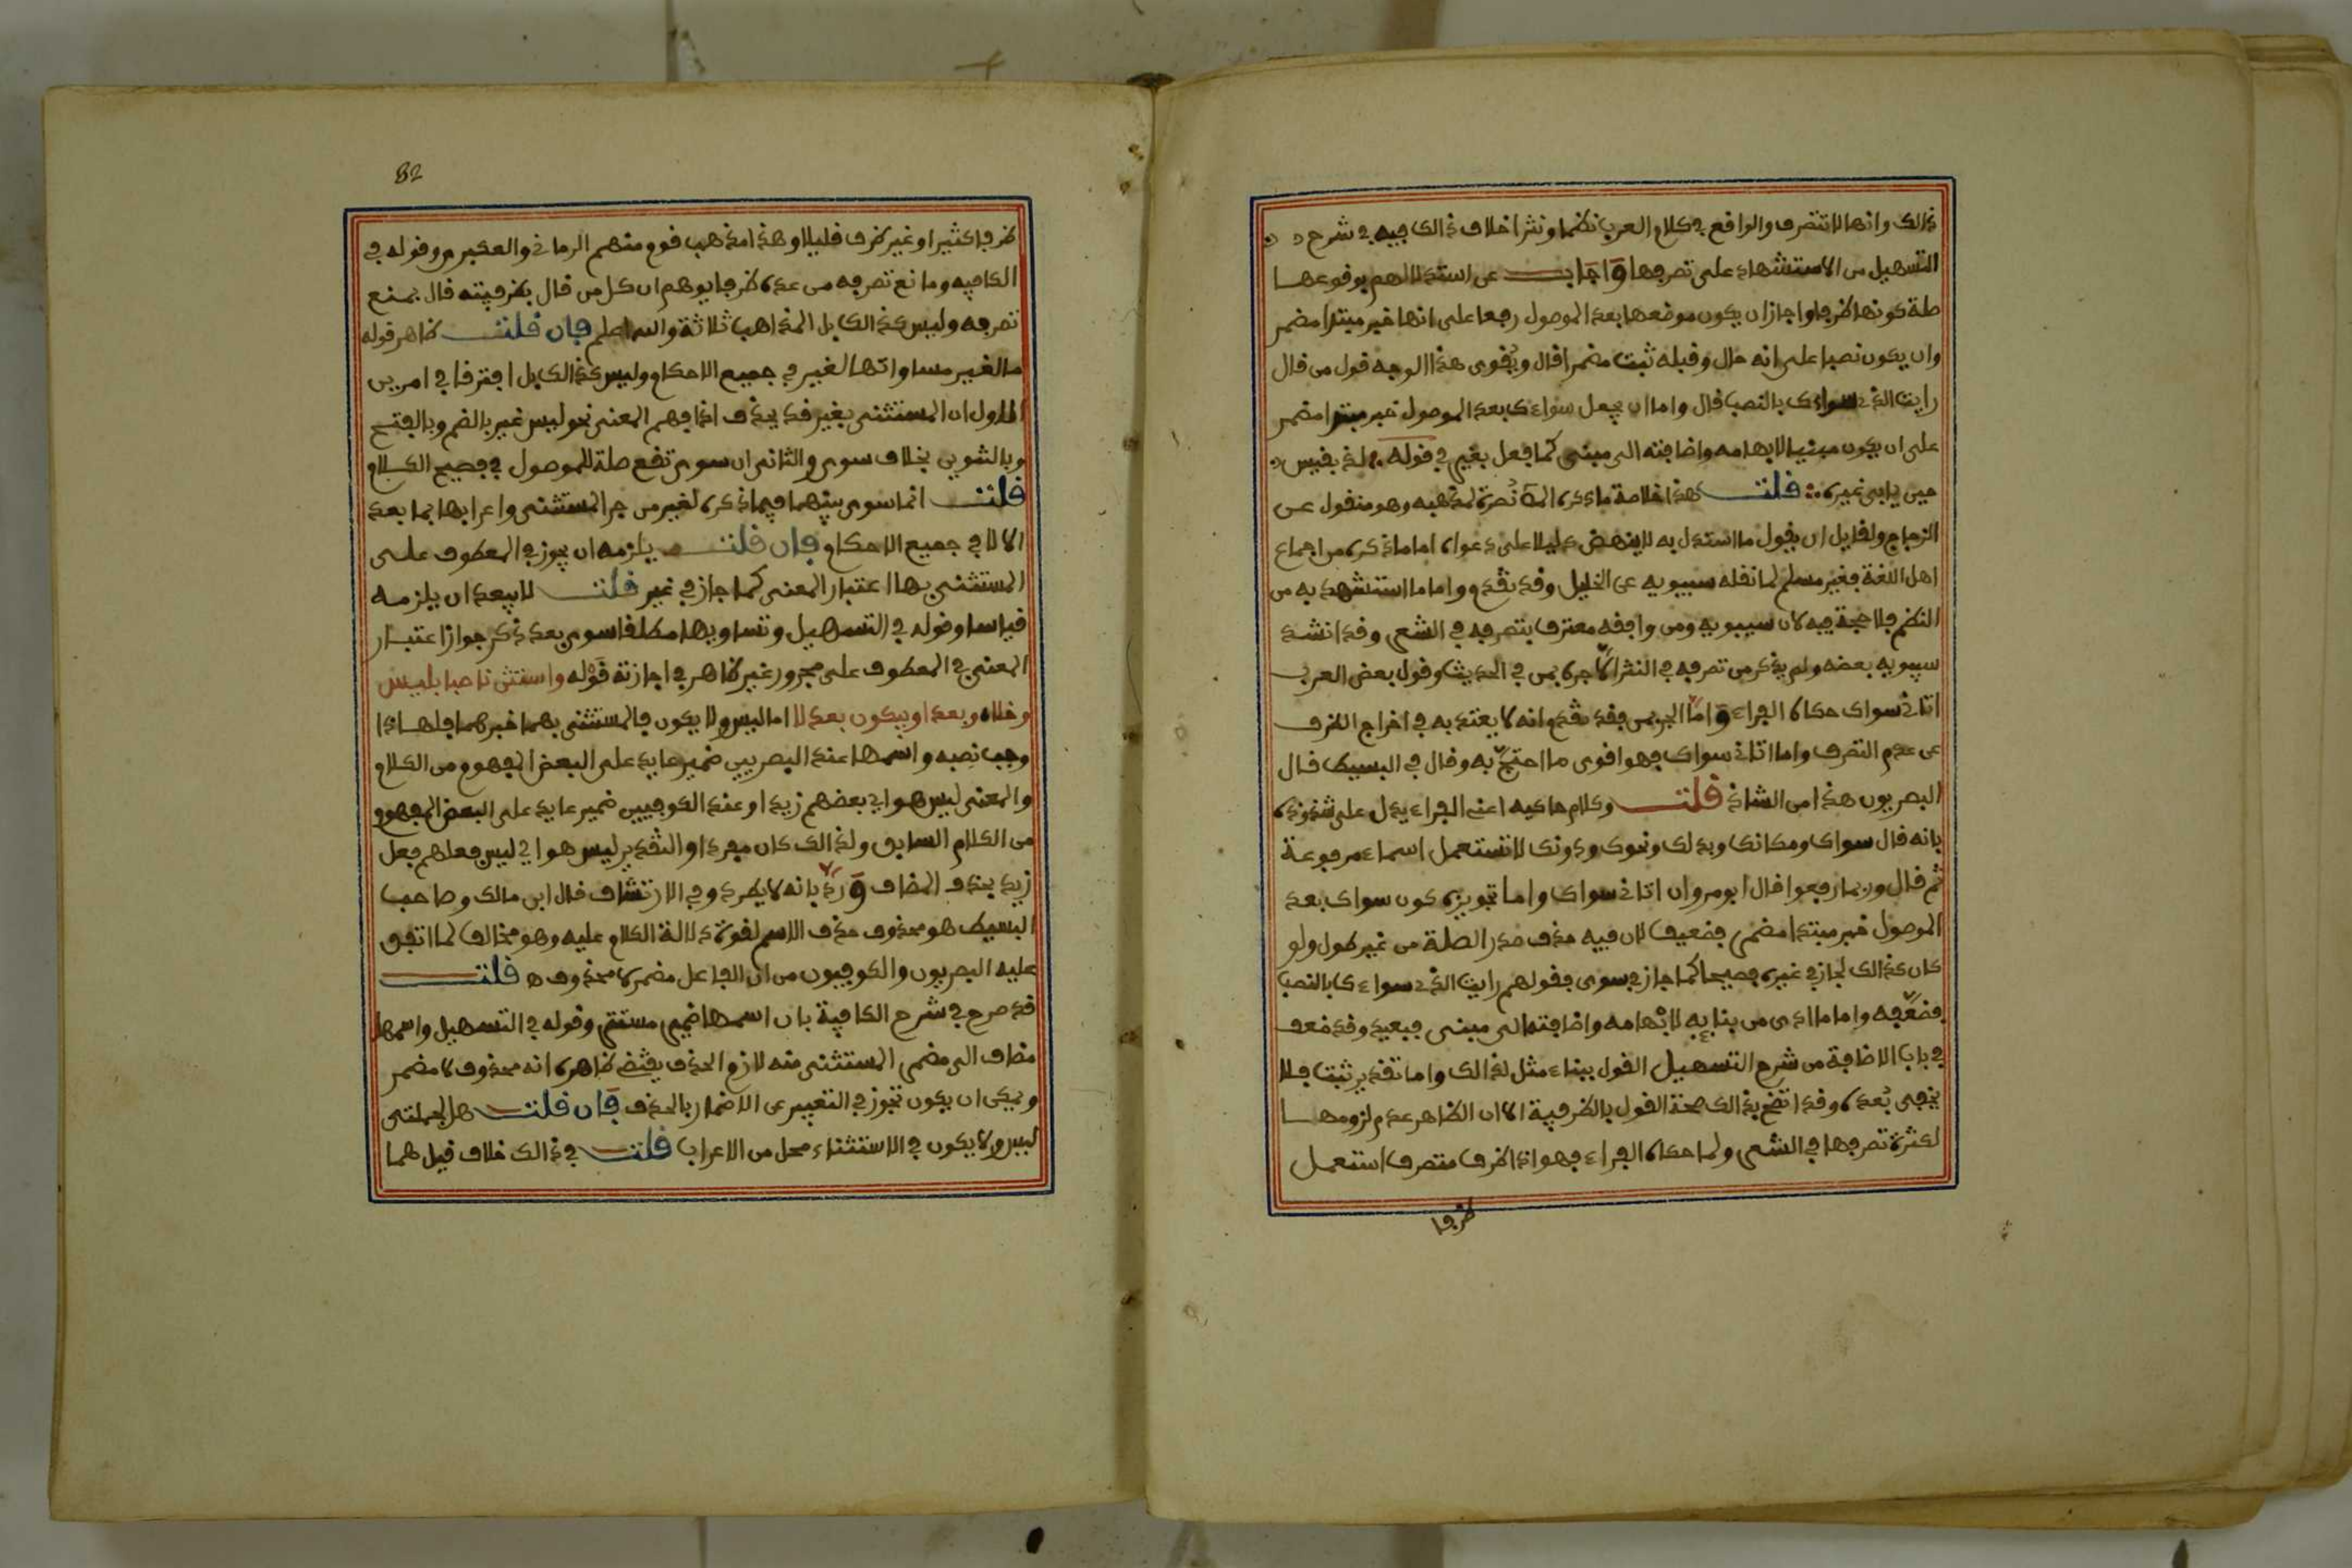 ذالك وانها لا تتصرف والواقع في كلام العرب نظما ونثرا خلاف ذالك فيه في شرح
التسهيل من الاستشهاد على تصرفها وأجاب عن استدلالهم بوقوعها
صلة كونها ظرفا واجاز ان يكون موضعها بعد الموصول رفعا على انها خبر مبتدا مضمر
وان يكون نصبا على انه حال وقبله ثبت مضمرا قال ويُقوى هذا الوجه قول من قال
رايت الذي سواءك بالنصب قال واما ان يجعل سواءك بعد الموصول خبر مبتدا مضمر
على ان يكون مبنيا لابهامه واضافته الى مبنى كما فعل بغير في قوله لذ بقيس
حين يابى غيره قلت هذا خلاصة ما ذكره المص نُصرة لمذهبه وهو منقول عن
الزجاج ولقايل ان يقول ما استدل به لا ينهض دليلا على دعواه اما ما ذكره من اجماع
اهل اللغة فغير مسلم لما نقله سيبويه عن الخليل وقد تقدم واما ما استشهد به من
النظم فلا حجة فيه لان سيبويه ومن وافقه معترف بتصرفه في الشعر وقد انشد
سيبويه بعضه ولم يذكر من تصرفه في النثر الا جره بمن في الحديث وقول بعض العرب
اتاني سواك حكاه الفراء وأما الجر بمن فقد تقدم انه لا يعتد به في اخراج الظرف
عن عدم التصرف واما اتاني سواك فهو اقوى ما احتج به وقال في البسيط قال
البصريون هذا من الشاذ قلت وكلام حاكيه اعني الفراء يدل على شذوذه
بانه قال سواك ومكانك وبدلك ونحوك ودونك لا تستعمل اسماء مرفوعة
ثم قال وربما رفعوا قال ابو مروان اتاني سواك واما تجويزه كون سواك بعد
الموصول خبر مبتدا مضمر فضعيف لان فيه حذف صدر الصلة من غير طول ولو
كان كذالك لجاز في غيره فصيحا كما جاز في سوى فقولهم رايت الذي سواءك بالنصب
فضعفه واما ما ادى من بنايه لابهامه واضافته الى مبنى فبعيد وقد ضعف
في باب الاضافة من شرح التسهيل القول ببناء مثل لذالك واما تقدير ثبت فلا
يخفى بُعده وقد اتضح بذالك صحة القول بالظرفية الا ان الظاهر عدم لزومها
لكثرة تصرفها في الشعر ولما حكاه الفراء فهو اذا ظرف متصرف استعمل
ظرفا
82
ظرفا كثيرا وغير ظرف قليلا وهذا مذهب قوم منهم الرماني والعكبري وقوله في
الكافيه ومانع تصرفه من عده ظرفا يوهم ان كل من قال بظرفيته قال بمنع
تصرفه وليس كذالك بل المذاهب ثلاثة والله اعلم فان قلت ظاهر قوله
ما لغير مساواتها لغير في جميع الاحكام وليس كذالك بل افترقا في امرين
الاول ان المستثنى بغير قد يحذف اذا فهم المعنى نحو ليس غير بالضم وبالفتح
وبالتنوين بخلاف سوى والثاني ان سوى تقع صلة للموصول في فصيح الكلام
قلت انما سوى بينهما فيما ذكره لغير من جر المستثنى واعرابها بما بعد
الا لا في جميع الاحكام فان قلت يلزمه ان يجوز في المعطوف على
المستثنى بها اعتبار المعنى كما جاز في غير قلت لا يبعد ان يلزمه
قياسا وقوله في التسهيل وتساويها مطلقا سوى بعد ذكر جواز اعتبار
المعنى في المعطوف على مجرور غير ظاهر في اجازته قوله واستثن ناصبا بليس
وخلاه وبعدا وبيكون بعد لا اما ليس ولا يكون فالمستثنى بهما خبرهما فلهاذا
وجب نصبه واسمها عند البصريين ضمير عايد على البعض المفهوم من الكلام
والمعنى ليس هو اي بعضهم زيدا وعند الكوفيين ضمير عايد على البعض المفهوم
من الكلام السابق ولذالك كان مفردا والتقدير ليس هو اي ليس فعلهم فعل
زيد بحذف المضاف وَرُدّ بانه لا يطرد وفي الارتشاف قال ابن مالك وصاحب
البسيط هو محذوف حذف الاسم لقوة دلالة الكلام عليه وهو مخالف لما اتفق
عليه البصريون والكوفيون من ان الفاعل مضمر لا محذوف ه قلت
قد صرح في شرح الكافية بان اسمها ضمير مستتر وقوله في التسهيل واسمها
مضاف الى مضمر المستثنى منه لازم الحذف يقتضي ظاهره انه محذوف لا مضمر
ويمكن ان يكون تجوز في التعبير عن الاضمار بالحذف فَإن قلت هل لجملتي
ليس ولا يكون في الاستثناء محل من الاعراب قلت في ذالك خلاف قيل هما